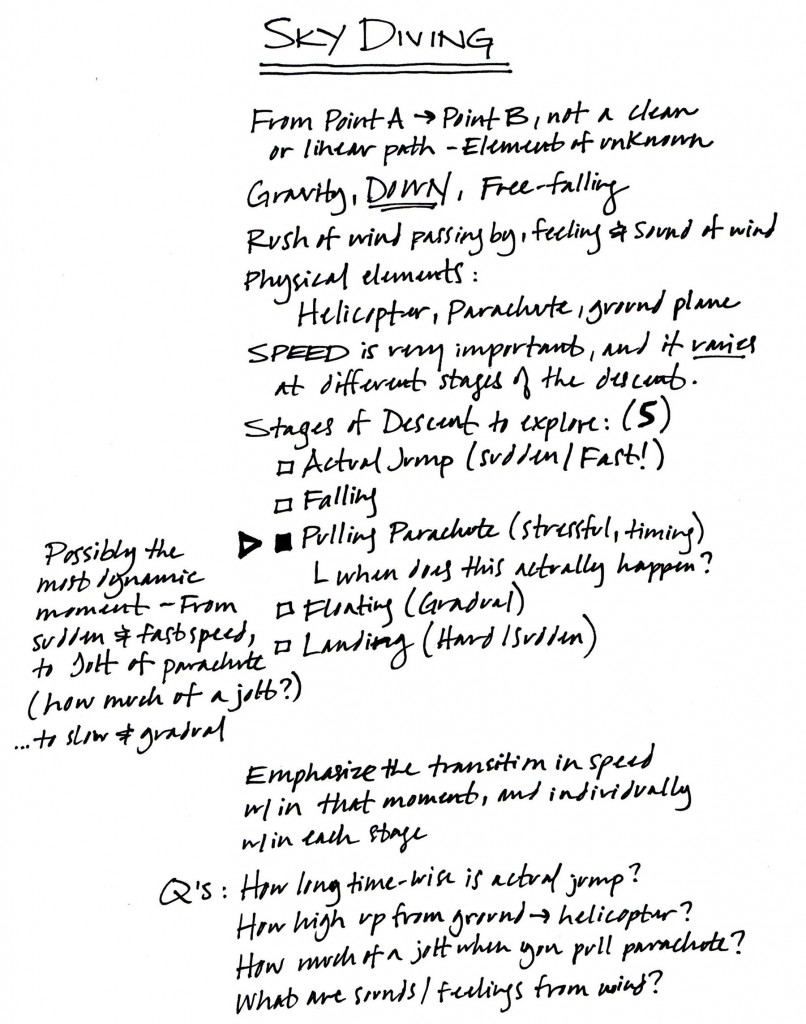 SKY DIVING
From Point A → Point B, not a clean
or linear path - Element of unknown
Gravity, DOWN, Free-falling
Rush of wind passing by, feeling & sound of wind
Physical elements:
Helicopter, Parachute, ground plane
SPEED is very important, and it varies
at different stages of the descent.
Stages of Descent to explore: (5)
□ Actual Jump (sudden/Fast!)
□ Falling
▷ ■ Pulling Parachute (stressful, timing)
L when does this actually happen?
□ Floating (Gradual)
□ Landing (Hard/Sudden)
Possibly the
most dynamic
moment - From
sudden & fast speed,
to Jolt of parachute
(how much of a jolt?)
...to slow & gradual
Emphasize the transition in speed
w/in that moment, and individually
w/in each stage
Q's: How long time-wise is actual jump?
How high up from ground → helicopter?
How much of a jolt when you pull parachute?
What are sounds/feelings from wind?